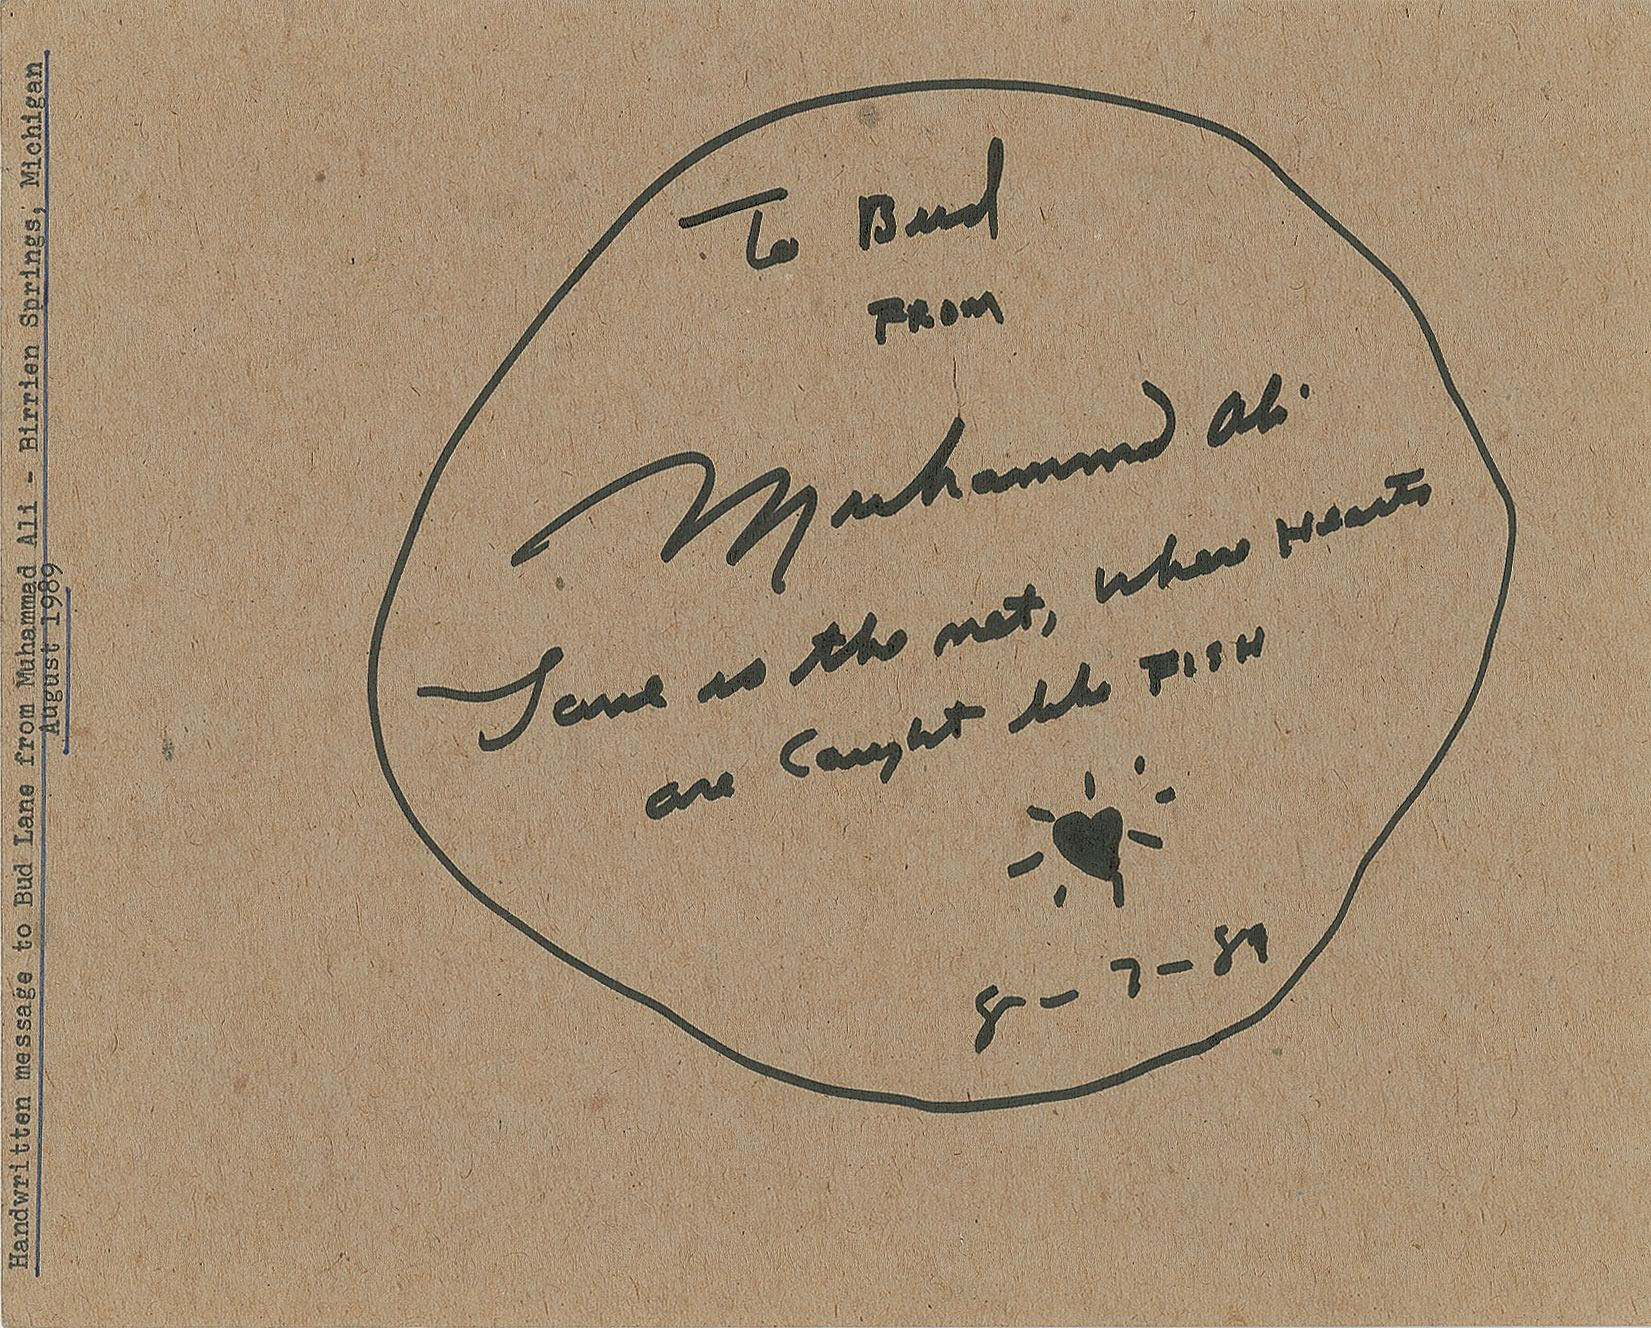 Handwritten message to Bud Lane from Muhammad Ali - Birrien Springs, Michigan
August 1989
To Bud
FROM
Muhammad Ali
Love is the net, where Hearts
are Caught like FISH
8-7-89